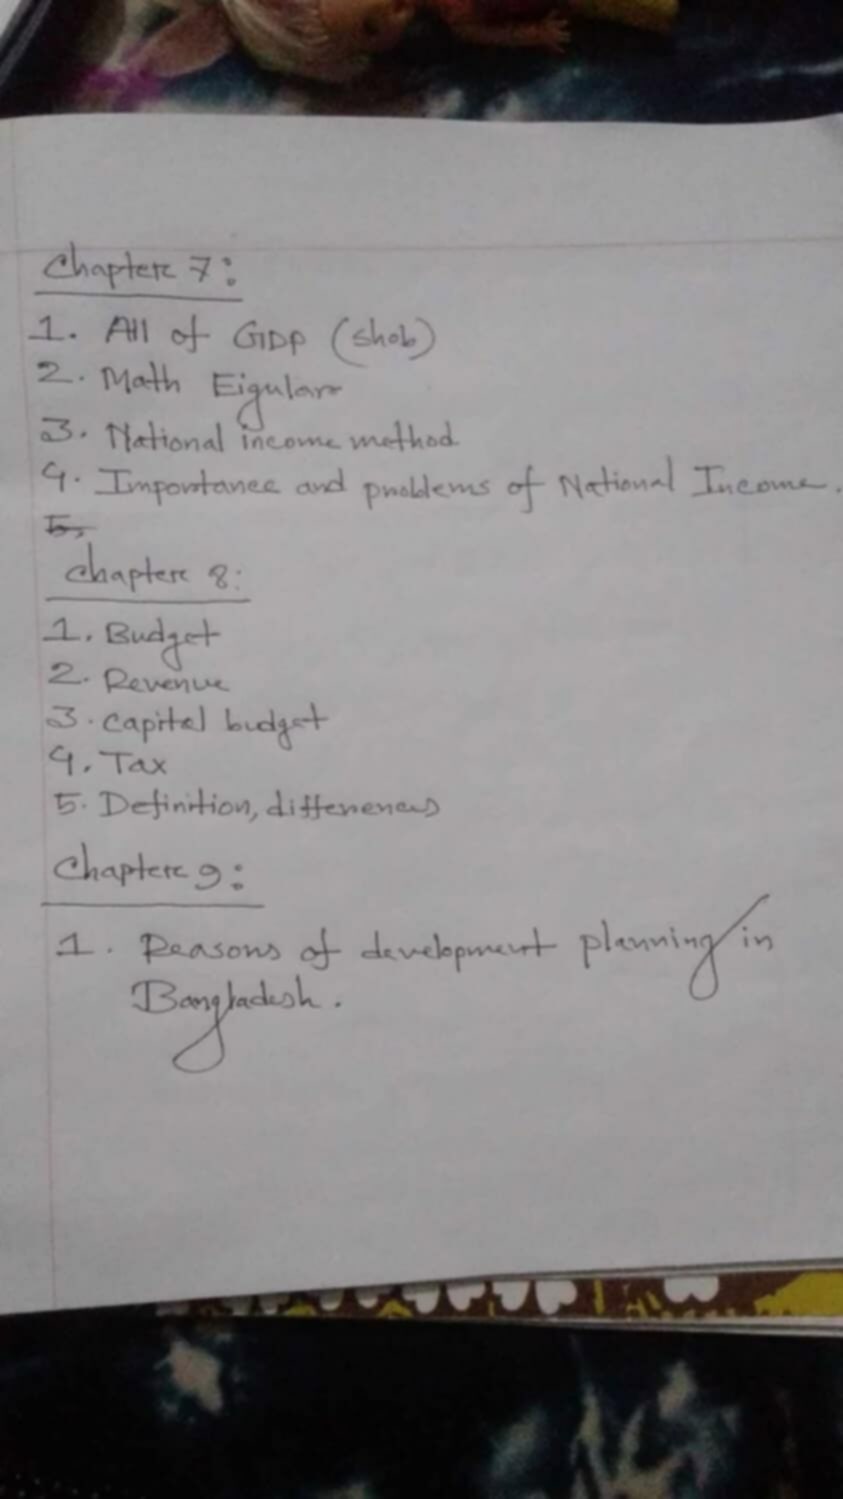 Chapter 7:
1. All of GDP (shob)
2. Math Eigular
3. National income method
4. Importance and problems of National Income.
5.
Chapter 8:
1. Budget
2. Revenue
3. Capital budget
4. Tax
5. Definition, differences
Chapter 9:
1. Reasons of development planning in
Bangladesh.